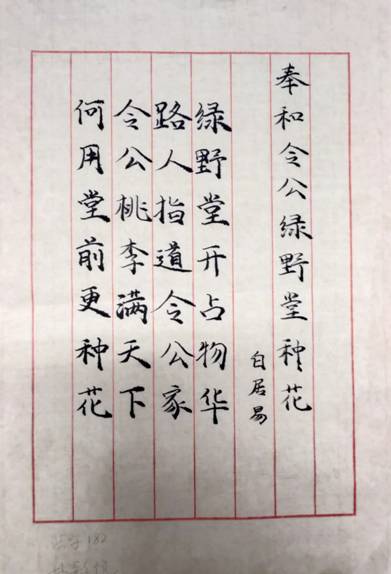 奉和令公绿野堂种花
白居易
绿野堂开占物华
路人指道令公家
令公桃李满天下
何用堂前更种花